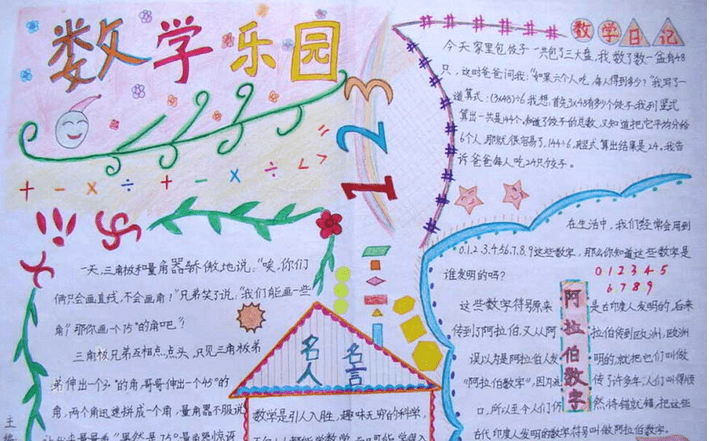 数学乐园
1 2 3
+ - × ÷ + - × ÷ < >
数学日记
今天家里包饺子一共包了三大盘,我数了数一盘有48
只,这时爸爸问我:"如果六个人吃,每人得到多少?"我写了一
道算式:(3×48)÷6我想:首先3×48有多少个饺子我列竖式
算出一共是144个,知道了饺子的总数,又知道把它平均分给
6个人,那就很容易了,144÷6,竖式算出结果是24。我告
诉爸爸每人吃24只饺子。
一天,三角板和量角器骄傲地说:"唉,你们
俩只会画直线,不会画角!"兄弟笑了说:"我们能画一些
角?那你画一个75°的角吧?"
三角板兄弟互相点点头,只见三角板弟
弟伸出一个30°的角,哥哥伸出一个45°的
角,两个角迅速拼成一个角,量角器不服说
名人名言
数学是引人入胜,趣味无穷的科学,
在生活中,我们经常会用到
0.1.2.3.4.5.6.7.8.9这些数字,那么你知道这些数字是
谁发明的吗?
0 1 2 3 4 5
6 7 8 9
阿拉伯数字
这些数字符号原来是古印度人发明的,后来
传到了阿拉伯,又从阿拉伯传到欧洲,欧洲
误以为是阿拉伯人发明的,就把它们叫做
"阿拉伯数字",因为流传了许多年人们叫得顺
口,所以至今人们仍然将错就错,把这些
古代印度人发明的数字符号叫做阿拉伯数字。
主